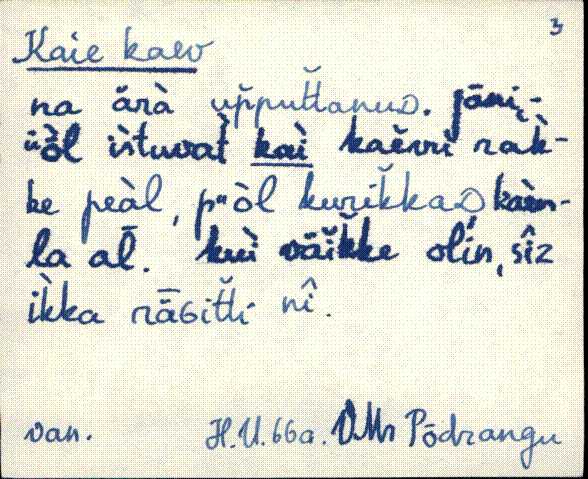 3
Kaie kaev
na ärà upputtanuD. jāni,-
üòl istuvat̀ kaì kaĕvvì rak̀-
ke peàl, p̈òl kurĭkkaD kaèn-
la al̄. kuì väĭkke olín, sîz
ìkka räGitti nî.
van. H.U. 66a. VMr Põdrangu